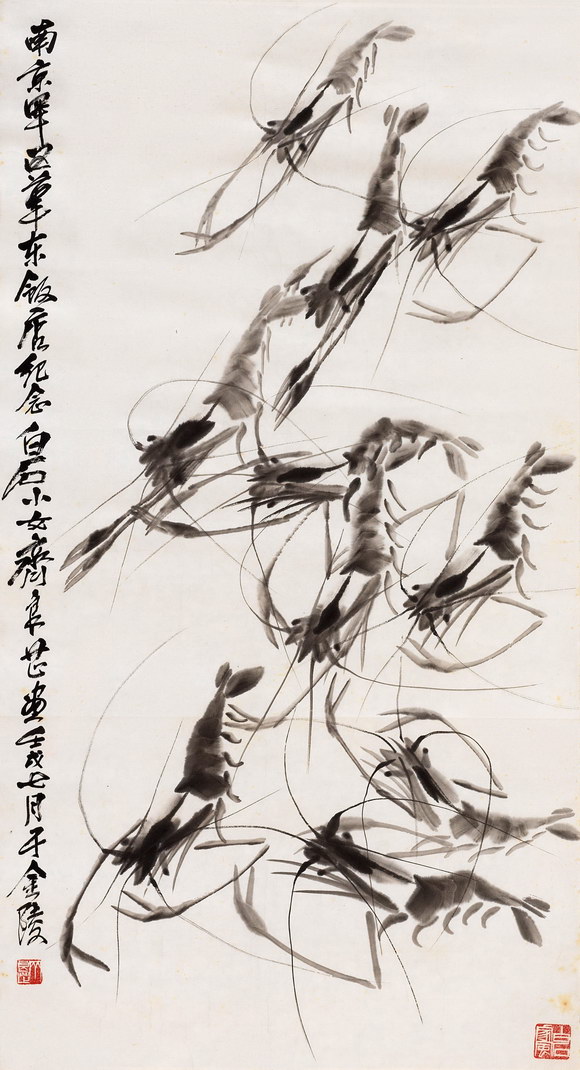 南京軍区華东飯店紀念白石小女齊良芷画壬戌七月于金陵